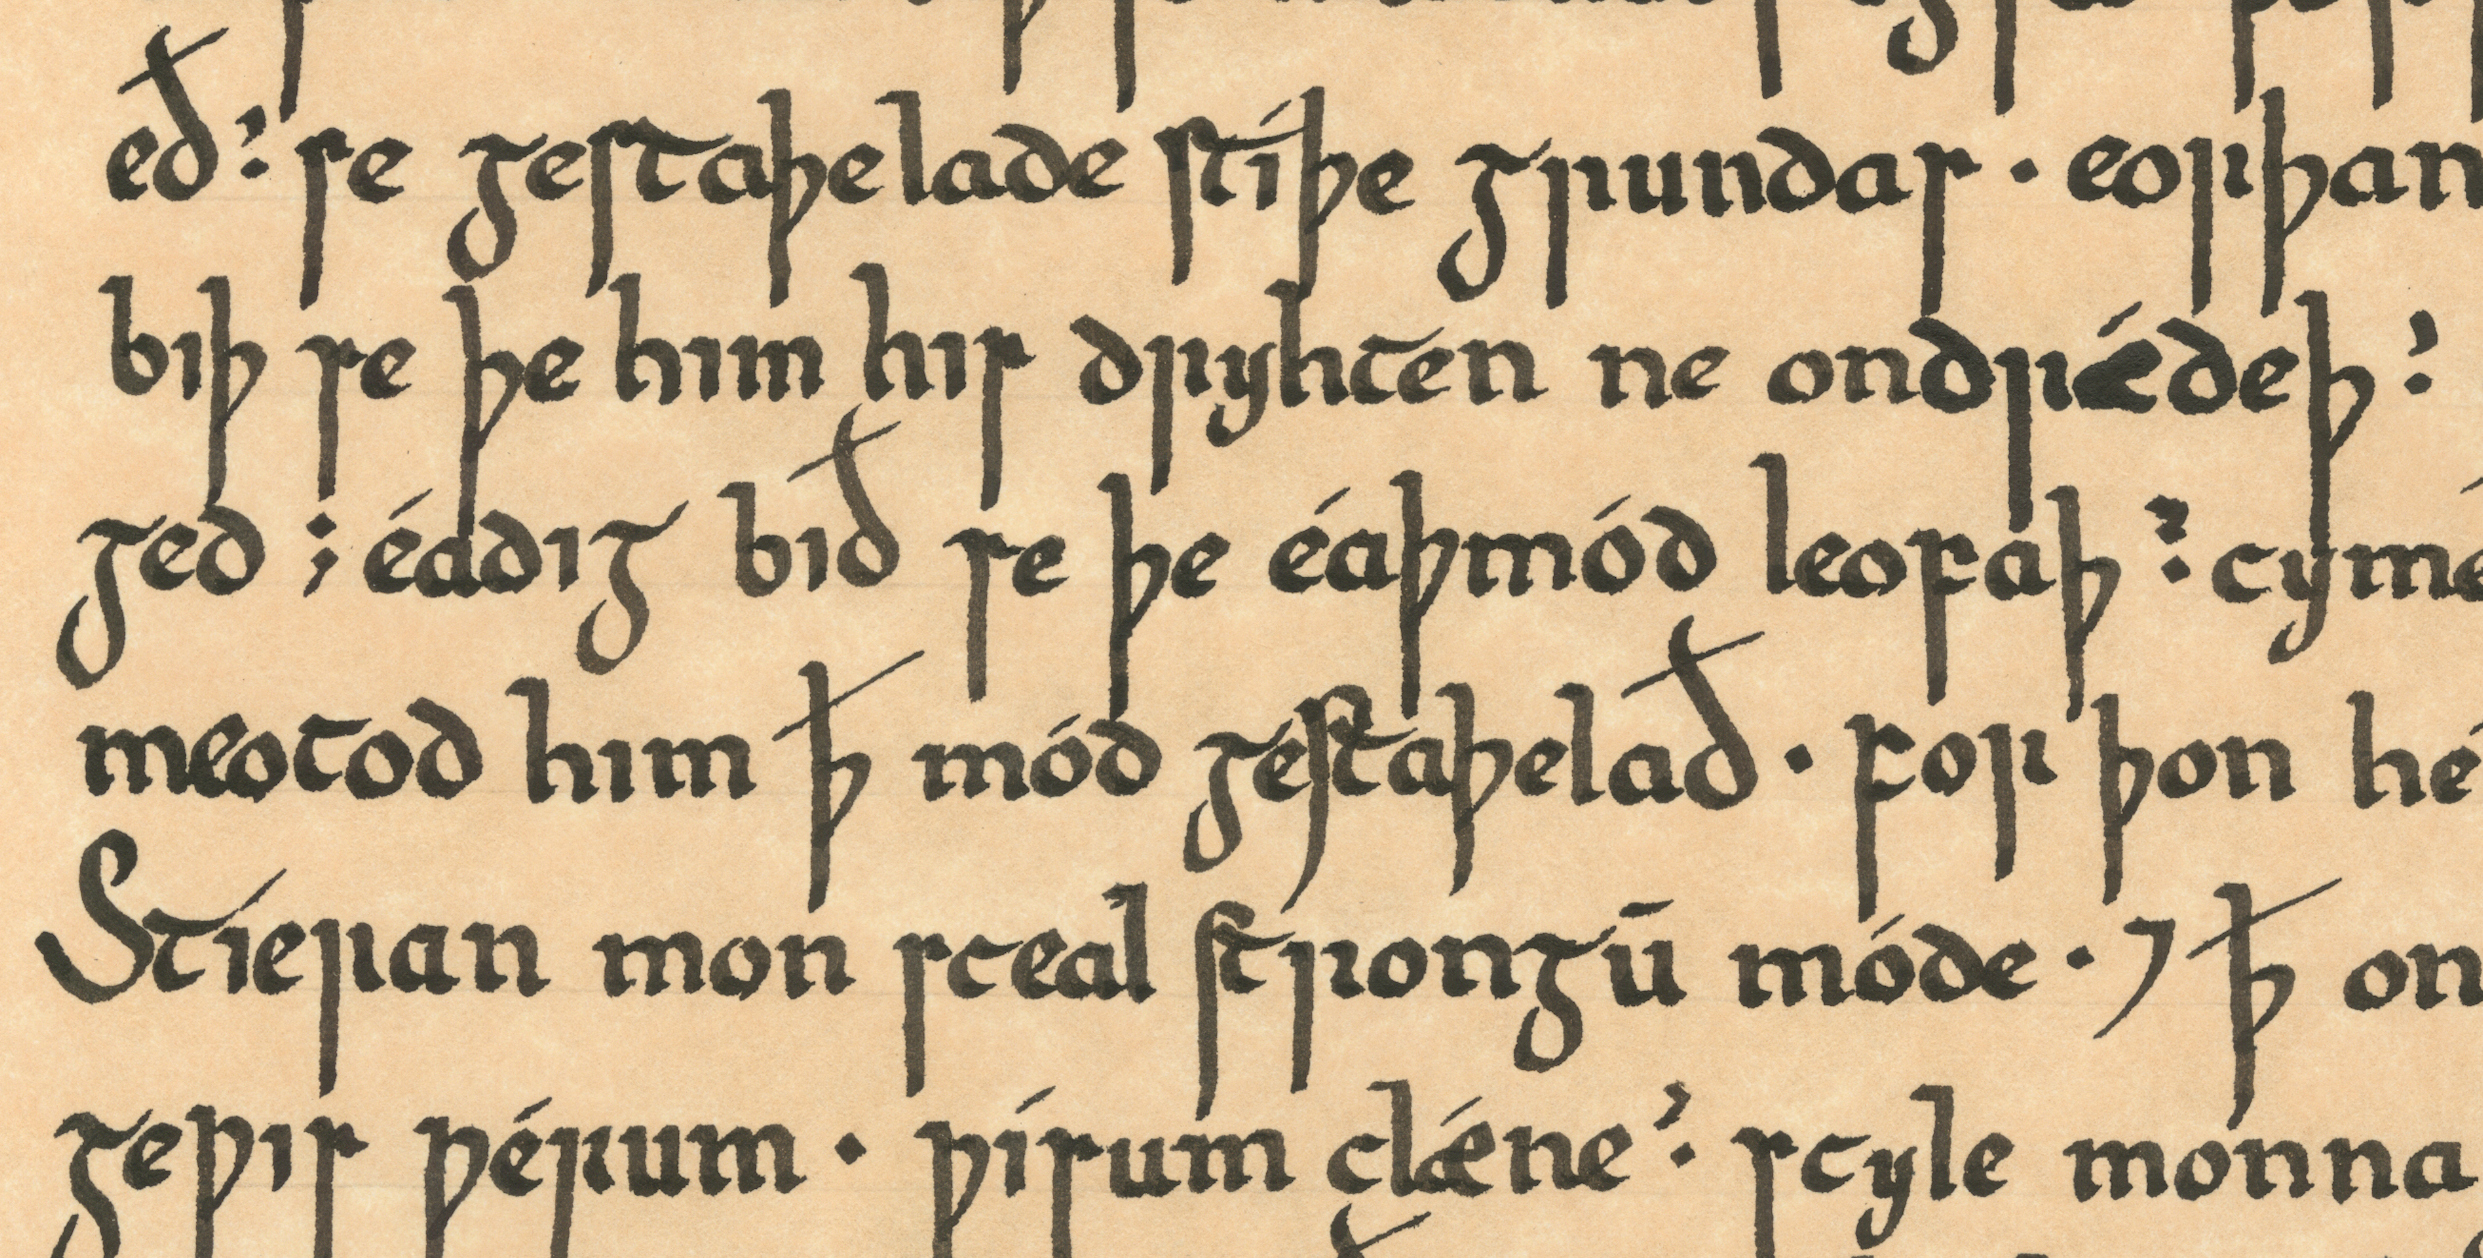 eð se gestaþelade stíþe grundas · eorþan
biþ se þe him his dryhten ne ondrǽdeþ
ged ; éadig bið se þe éaþmód leofaþ cymeð
meotod him ꝥ mód gestaþelað · for þon hé
Stíeran mon sceal strongū móde · ⁊ ꝥ on
gewis wérum · wísum clǽne scyle monna